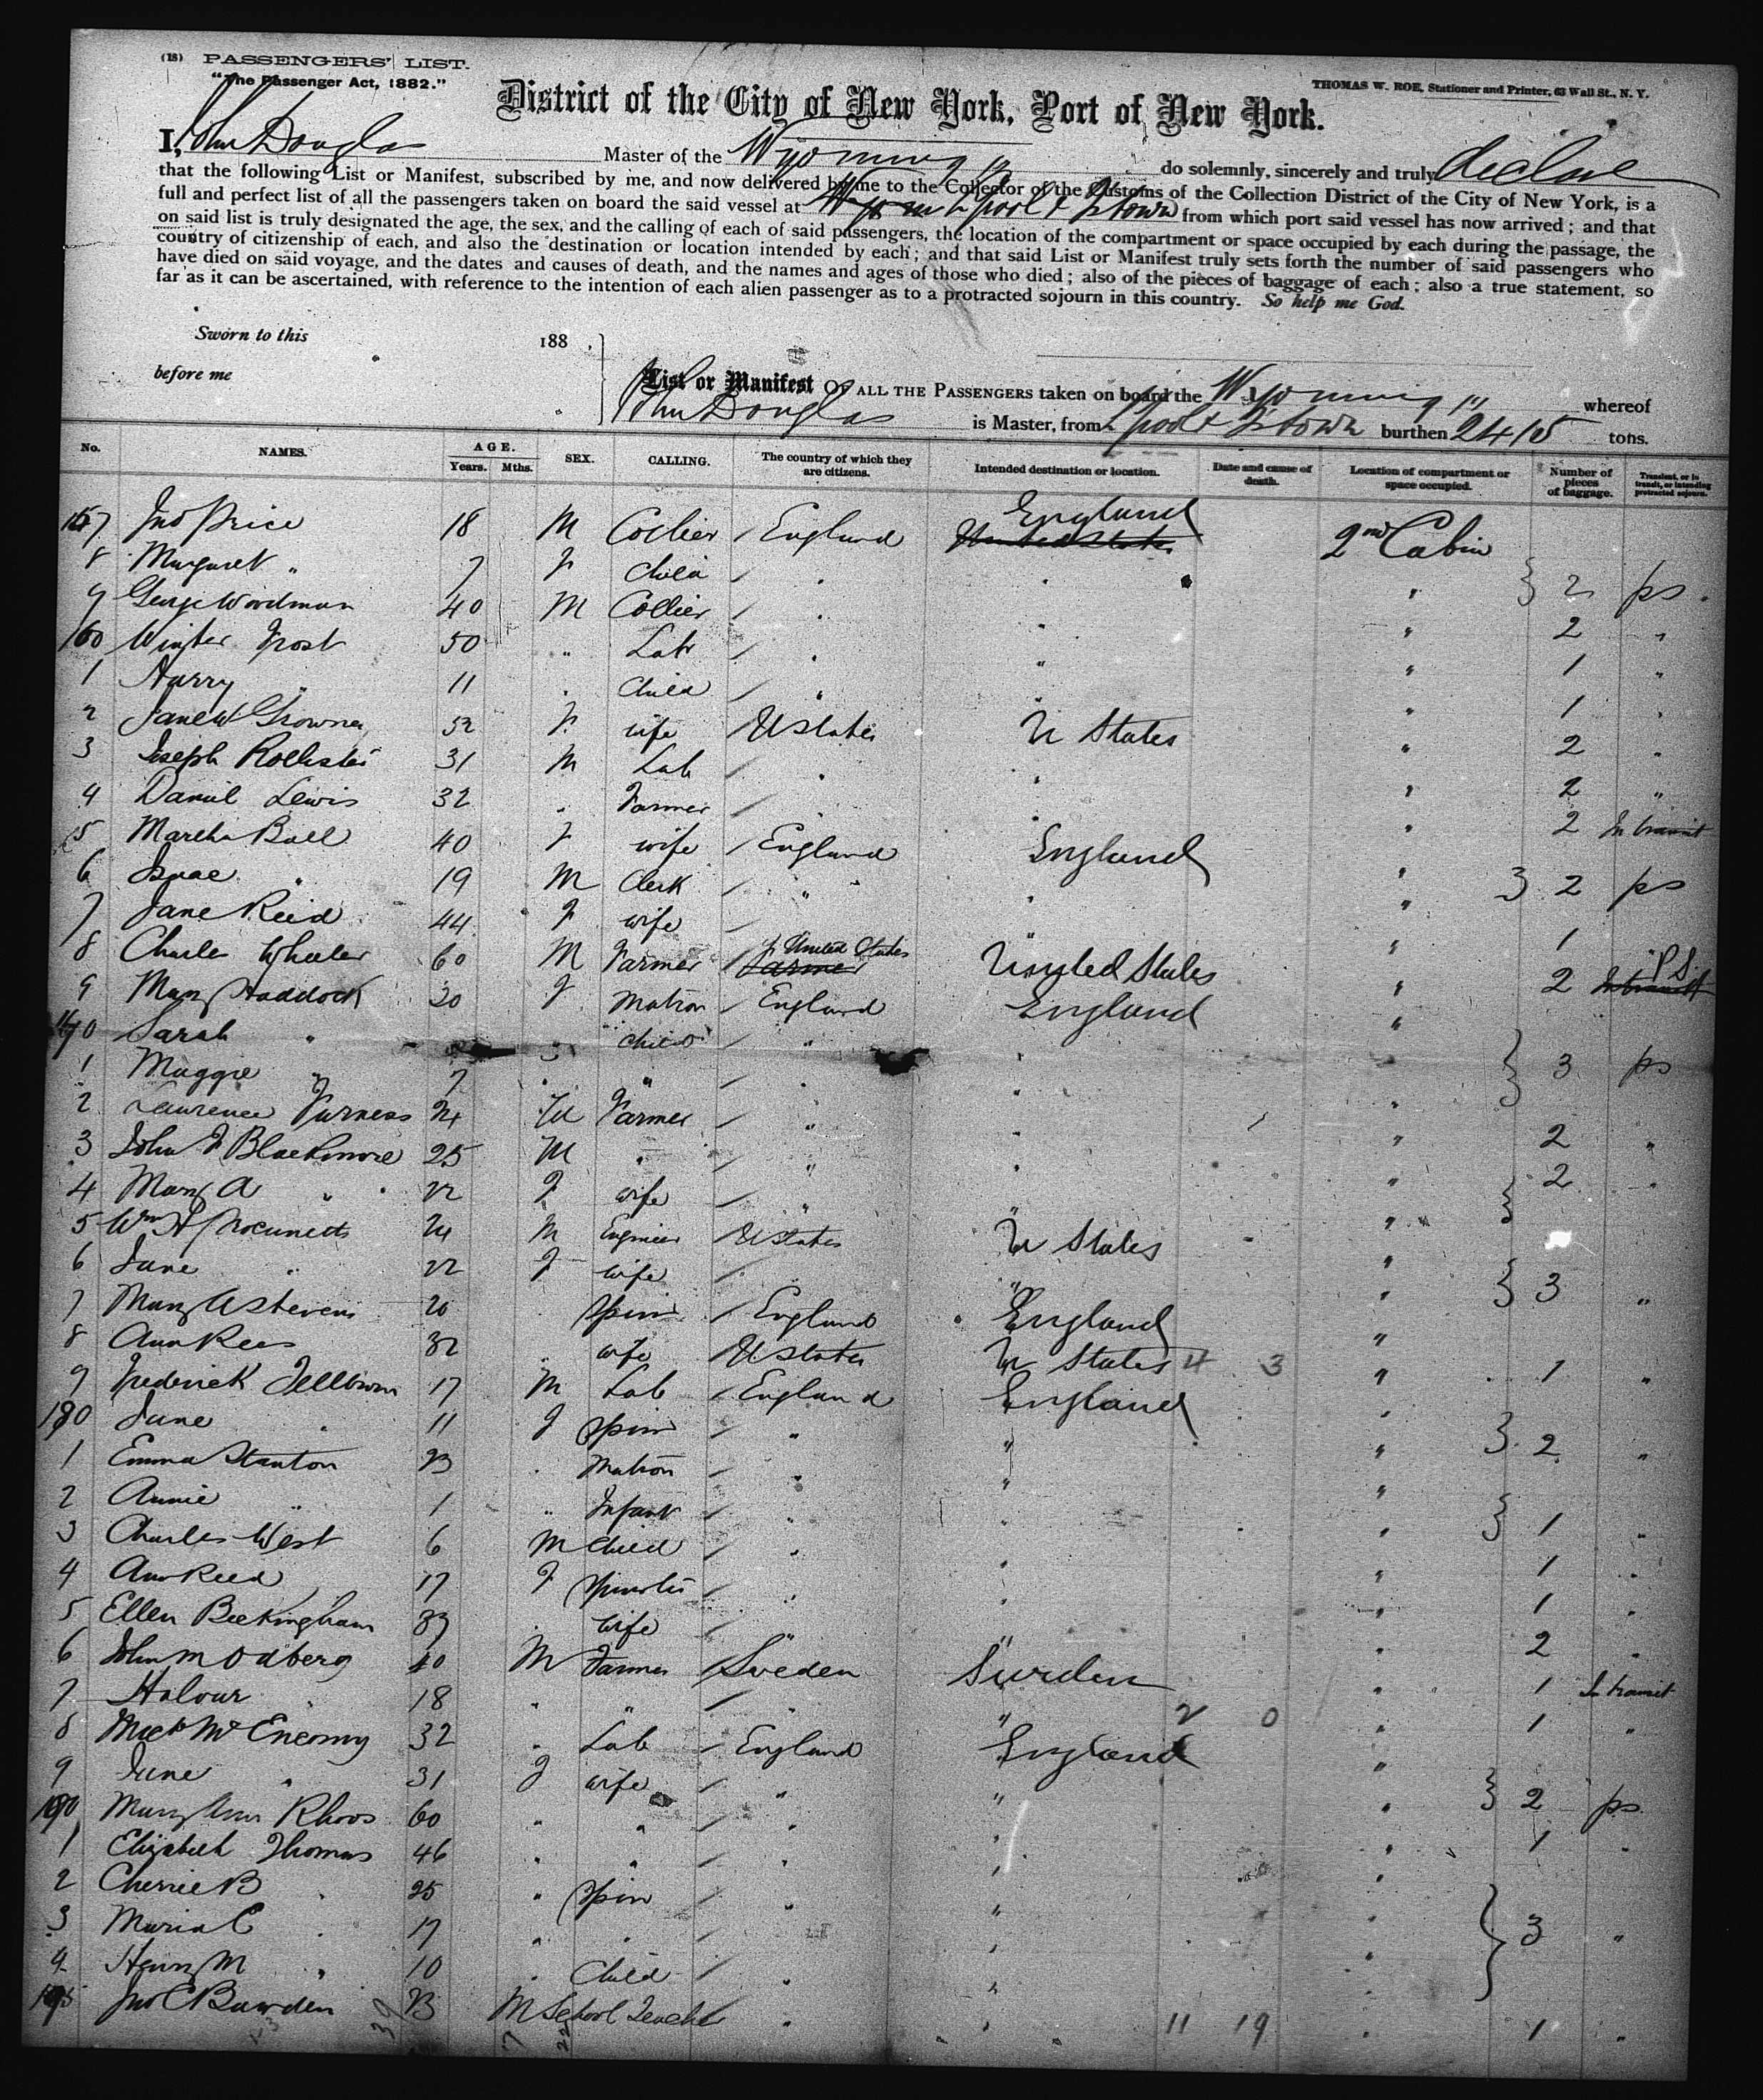 (18) PASSENGERS' LIST.
"The Passenger Act, 1882."
THOMAS W. ROE, Stationer and Printer, 63 Wall St., N. Y.
District of the City of New York, Port of New York.
I, John Douglas Master of the Wyoming do solemnly, sincerely and truly declare
that the following List or Manifest, subscribed by me, and now delivered by me to the Collector of the Customs of the Collection District of the City of New York, is a
full and perfect list of all the passengers taken on board the said vessel at L'pool & Q'town from which port said vessel has now arrived; and that
on said list is truly designated the age, the sex, and the calling of each of said passengers, the location of the compartment or space occupied by each during the passage, the
country of citizenship of each, and also the destination or location intended by each; and that said List or Manifest truly sets forth the number of said passengers who
have died on said voyage, and the dates and causes of death, and the names and ages of those who died; also of the pieces of baggage of each; also a true statement, so
far as it can be ascertained, with reference to the intention of each alien passenger as to a protracted sojourn in this country. So help me God.
Sworn to this 188 .
before me
List or Manifest OF ALL THE PASSENGERS taken on board the Wyoming whereof
John Douglas is Master, from L'pool & Q'town burthen 2415 tons.
No. NAMES. AGE. Years. Mths. SEX. CALLING. The country of which they are citizens. Intended destination or location. Date and cause of death. Location of compartment or space occupied. Number of pieces of baggage. Transient, or in transit, or intending protracted sojourn.
157 Jno Price 18 M Collier / England England United States 2nd Cabin
8 Margaret " 7 F Child / " " " } 2 ps.
9 George Woodman 40 M Collier / " " " 2 "
160 Winter Frost 50 " Labr / " " " 1 "
1 Harry " 11 " Child / " " " 1 "
2 Jane W 32 F wife / U States U States " 2 "
3 Joseph 31 M Lab / " " " 2 "
4 Daniel Lewis 32 " Farmer / " " " 2 In transit
5 Martha Ball 40 F wife / England England "
6 Isaac " 19 M Clerk / " " " } 2 ps
7 Jane Reid 44 F wife / " " " 1
8 Charles Wheeler 60 M Farmer / United States Farmer United States " 2 P.S. In transit
9 Mary Haddock 30 F Matron / England England "
170 Sarah " " Child / " " "
1 Maggie " 7 " " / " " " } 3 ps
2 Laurence Furness 24 M Farmer / " " " 2 "
3 John F Blackmore 25 M " / " " "
4 Mary A " 22 F wife / " " " } 2 "
5 Wm H 24 M Engineer / U States U States "
6 Jane " 22 F wife / " " " } 3 "
7 Mary A Stevens 20 " Spin / England England "
8 Ann Rees 32 " wife / U States U States 4 3 " 1 "
9 Frederick 17 M Lab / England England "
180 Jane " 11 F Spin / " " " } 2 "
1 Emma Stanton 23 " Matron / " " "
2 Annie " 1 " Infant / " " " } 1 "
3 Charles West 6 M Child / " " " 1 "
4 Ann Reed 17 F / " " " 1 "
5 Ellen Beckingham 39 " wife / " " " 2 "
6 John M Odberg 40 M Farmer / Sweden Sweden " 1 In transit
7 Halvur " 18 " " / " " 2 0 " 1 "
8 32 " Lab / England England "
9 Jane " 31 F wife / " " " } 2 ps.
190 Mary Ann 60 " " / " " " 1 "
1 Elizabeth Thomas 46 " " / " " "
2 B " 25 " Spin / " " "
3 Maria C " 17 " " / " " " } 3 "
4 Henry M " 10 " Child / " " "
195 Jno C Bawden 23 M School Teacher / " " 11 19 " 1 "
39 7 22